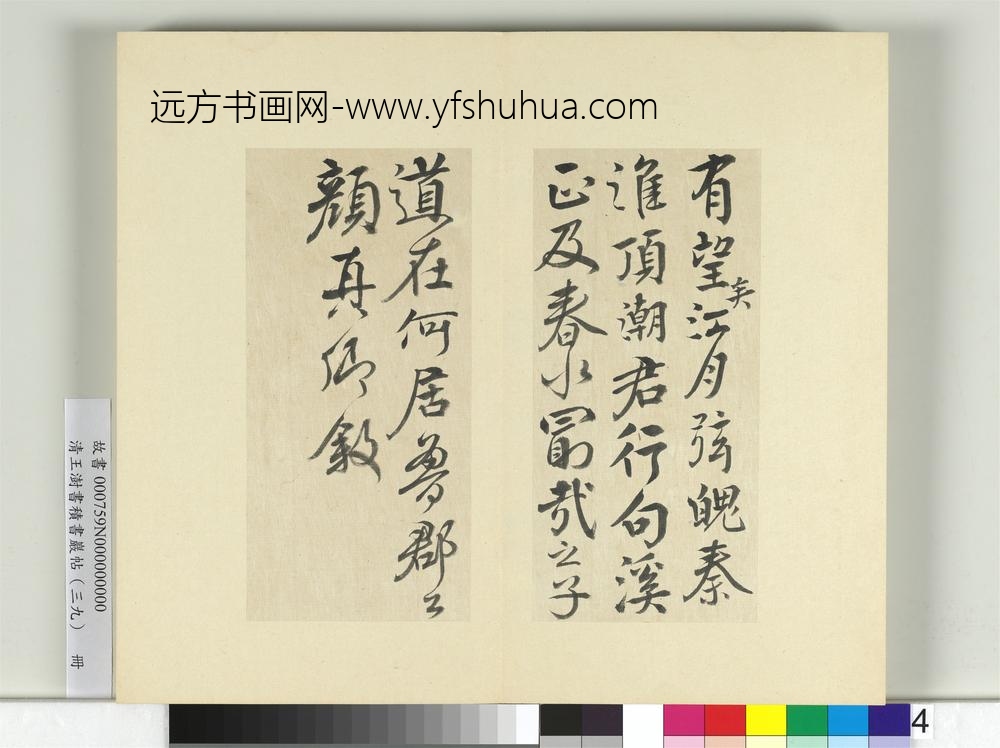 远方书画网-www.yfshuhua.com
有望矣江月弦魄秦
淮頂潮君行句溪
正及春水勗哉之子
道在何居魯郡公
顏真卿叙
故書 000759N000000000
清王澍書積書巖帖（三九） 冊
4